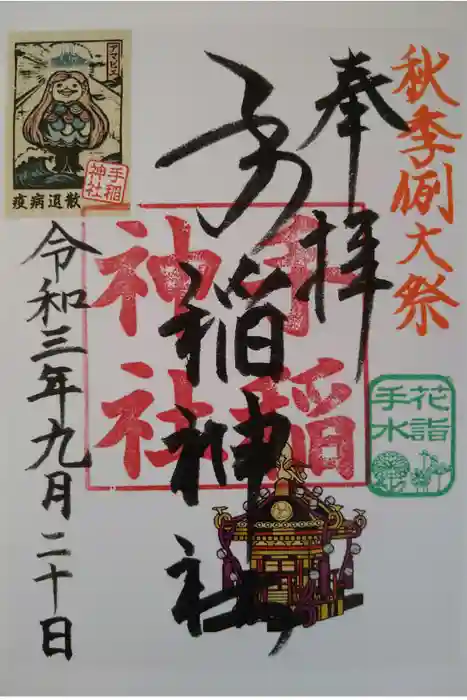 秋季例大祭
奉拝
手稲神社
手稲
神社
花詣
手水
令和三年九月二十日
アマビエ
疫病退散
手稲
神社